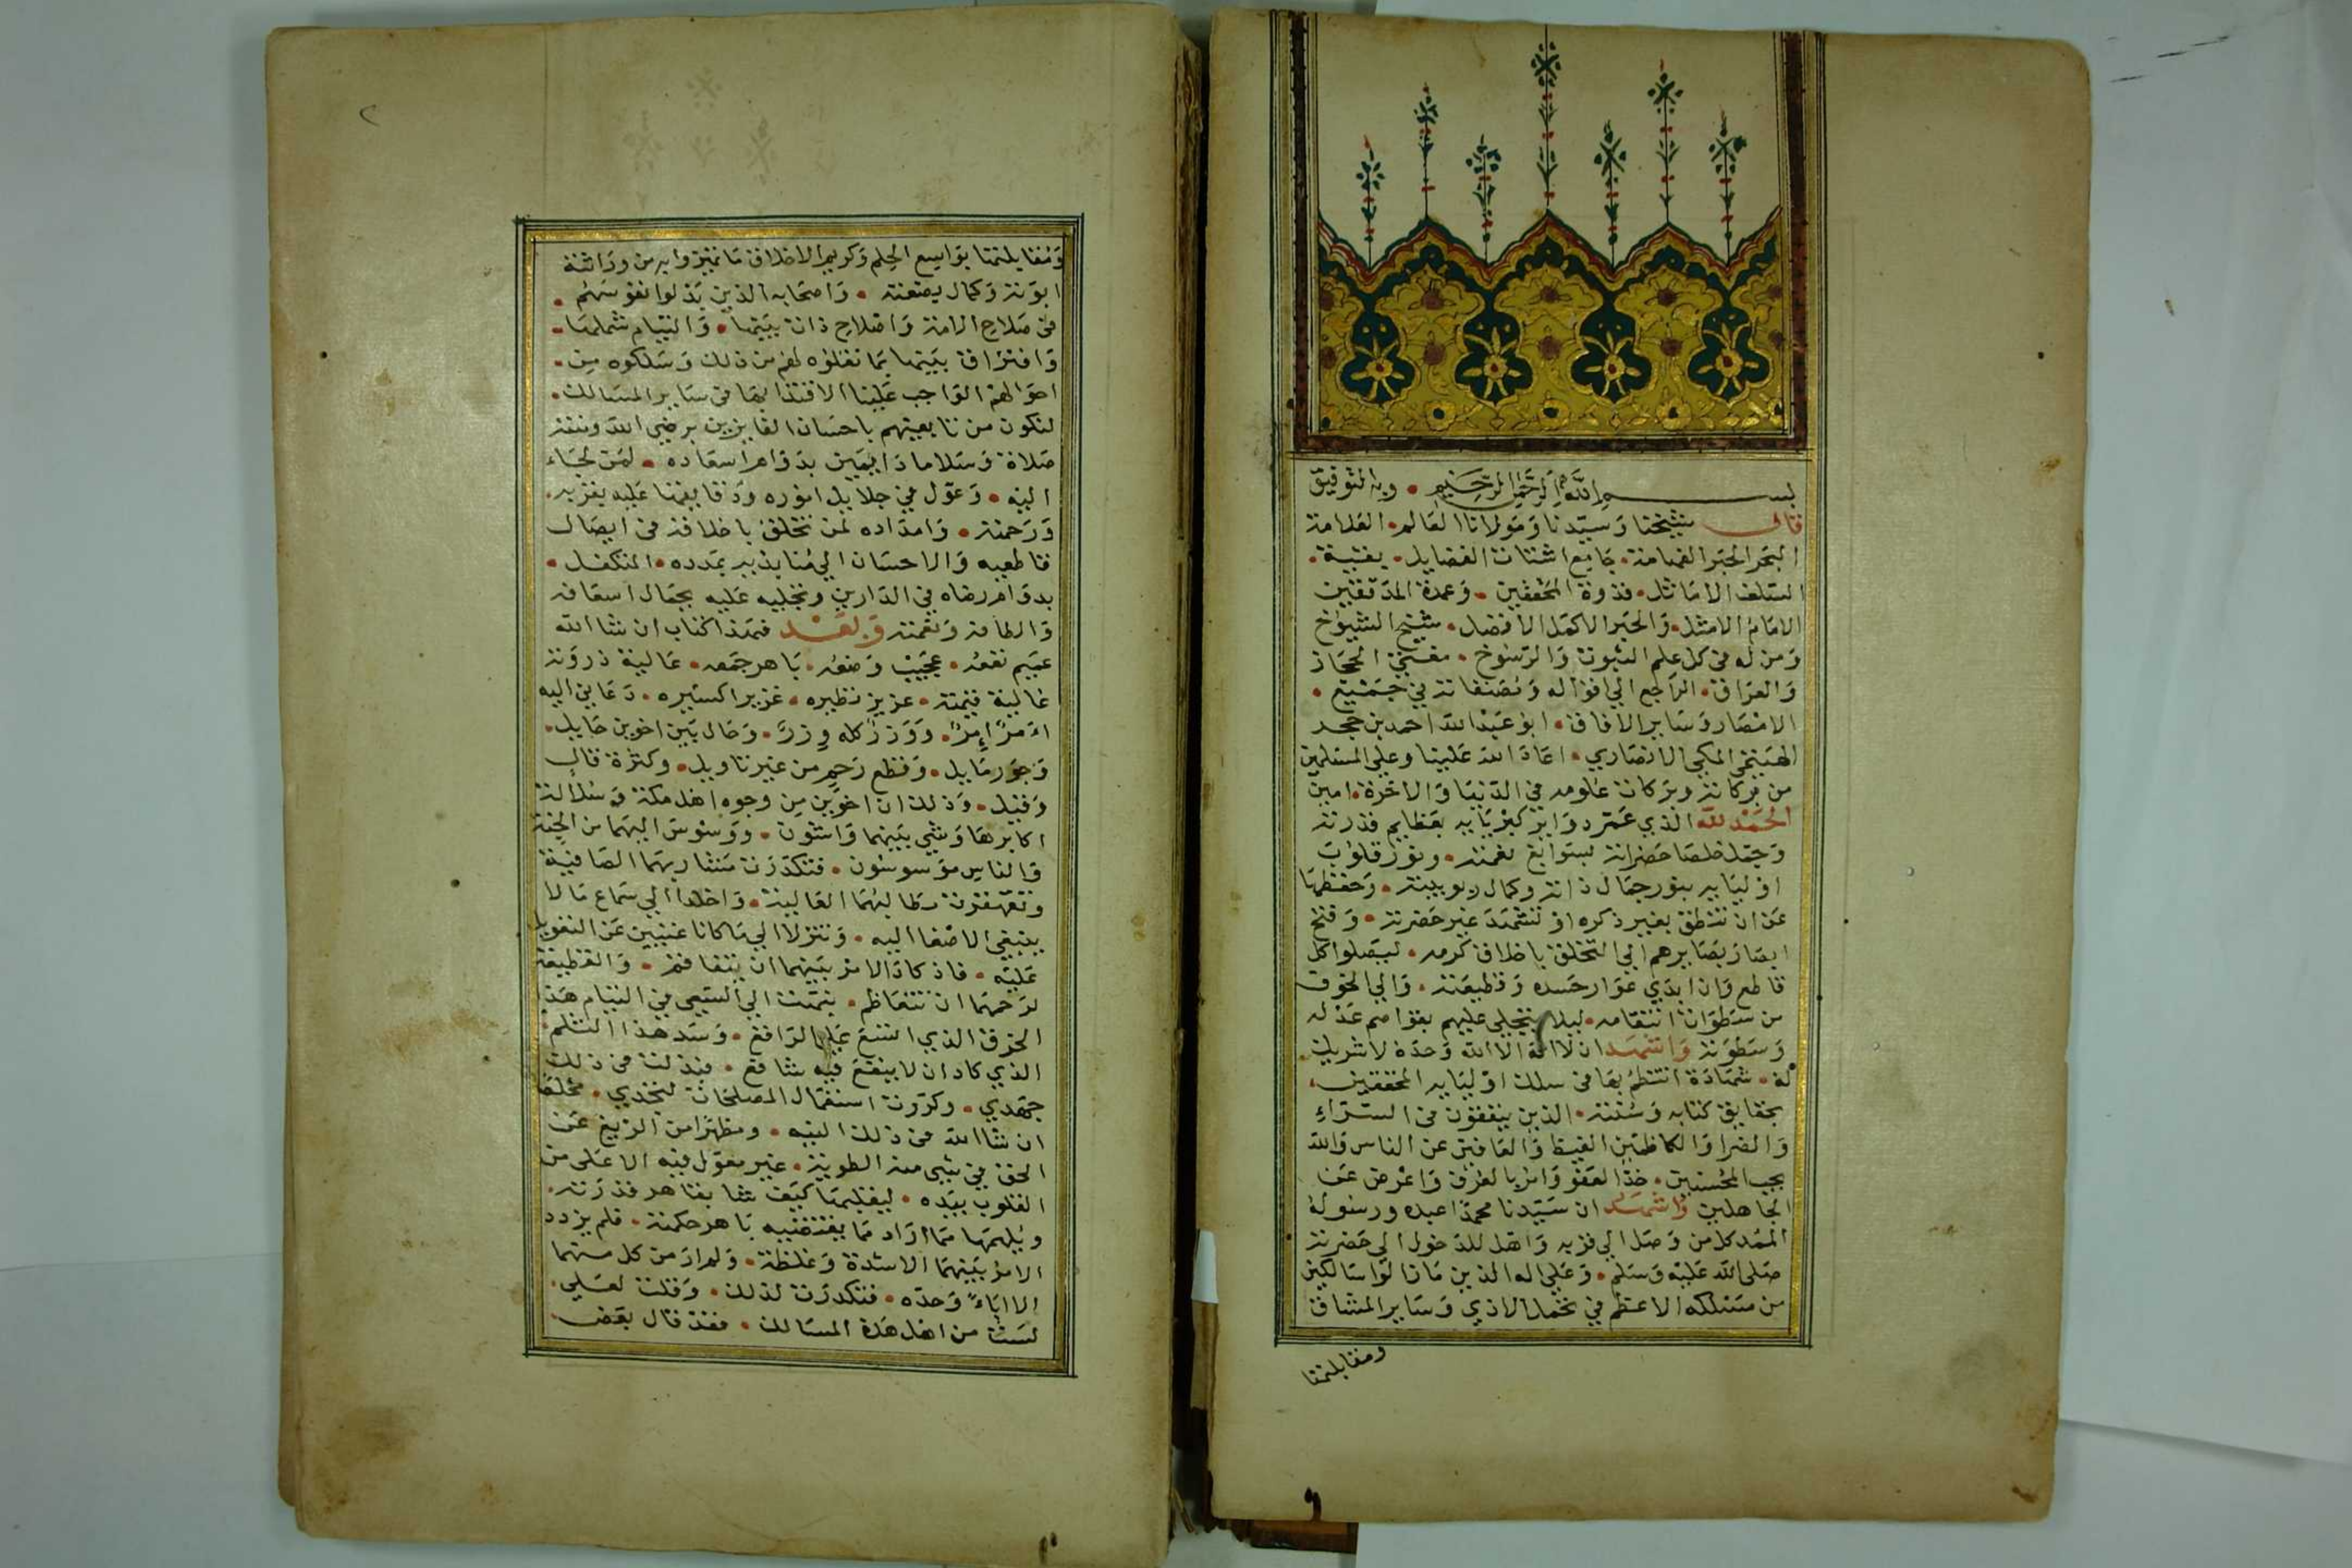 بسم الله الرحمن الرحيم • وبه التوفيق
قال شيخنا وسيدنا ومولانا العالم • العلامة
البحر الحبر الفهامة • جامع اشتات الفضايل • بقية •
السلف الاماثل • قدوة المحققين • وعمدة المدققين
الامام الامثل • والحبر الاكمل الافضل • شيخ الشيوخ
ومن له في كل علم الثبوت والرسوخ • مفتي الحجاز
والعراق • الراجع الي اقواله ومصنفاته في جميع •
الامصار وساير الافاق • ابو عبد الله احمد بن حجر
الهيتمي المكي الانصاري • اعاد الله علينا وعلي المسلمين
من بركاته وبركات علومه في الدنيا والاخرة • امين
الحمد لله الذي عمر دواير كبريايه بعظايم قدرته
وجمل خلصا حضراته بسوابغ نعمته • ونور قلوب
اوليايه بنور جمال ذاته وكمال ربوبيته • وحفظها
عن ان تنطق بغير ذكره او تشهد غير حضرته • وفتح
ابصار بصايرهم الي التخلق باخلاق كرمه • ليصلوا كل
قاطع وان ابدي عوار حسده وقطيعته • والي الخوف
من سطوات انتقامه • ليلا يتجلي عليهم بقواصم عدله
وسطوته واشهد ان لا اله الا الله وحده لا شريك •
له • شهادة انتظم بها في سلك اوليايه المحققين •
بحقايق كتابه وسنته • الذين ينفقون في السراء
والضرا والكاظمين الغيظ والعافين عن الناس والله
يحب المحسنين • خذ العفو وامر بالعرف واعرض عن
الجاهلين واشهد ان سيدنا محمدا عبده ورسوله
الممد كل من وصل الي قربه واهل للدخول الي حضرته
صلي الله عليه وسلم • وعلي اله الذين مازالوا سالكين
من مسلكه الاعظم في تحمل الاذي وساير المشاق
ومقابلتها
ومقابلتها بواسع الحلم وكريم الاخلاق ما تميزوا به من وراثة
ابوته وكمال بضعته • واصحابه الذين بذلوا نفوسهم •
في صلاح الامة واصلاح ذات بينها • والتيام شملها •
وافتراق بينها بما نقلوه لهم من ذلك وسلكوه من •
احوالهم الواجب علينا الاقتدا بها في ساير المسالك •
لنكون من تابعيهم باحسان الفايزين برضي الله ومنته
صلاة وسلاما دايمين بدوام اسعاده • لمن لجاء
اليه • وعول في جلايل اموره ودقايقها عليه بقربه •
ورحمته • وامداده لمن تخلق باخلاقه في ايصال
قاطعيه والاحسان الي منابذيه بمدده • المتكفل •
بدوام رضاه في الدارين وتجليه عليه بجمال اسعافه
والطافه ونعمته وبعد فهذا كتاب ان شا الله
عميم نفعه • عجيب وضعه • باهر جمعه • عالية ذروته
غالية قيمته • عزيز نظيره • غزير اكسيره • دعاني اليه
امر امر • ووزر كله وزر • وحال بين اخوين حايل •
وجور مايل • وقطع رحم من غير تاويل • وكثرة قال
وقيل • وذلك ان اخوين من وجوه اهل مكة وسلالة
اكابرها وشي بينهما واشون • ووسوس اليهما من الجنة
والناس موسوسون • فتكدرت مشاربهما الصافية
وتقهقرت مطالبهما العالية • واخلدا الي سماع ما لا
ينبغي الاصغا اليه • وتنزلا الي ما كانا غنيين عن التعويل
عليه • فاذ كاد الامر بينهما ان يتفاقم • والقطيعة
لرحمهما ان تتعاظم • يممت الي السعي في التيام هذا
الخرق الذي اتسع علي الراقع • وسد هذا الثلم
الذي كاد ان لا ينفع فيه شافع • فبذلت في ذلك
جهدي • وكررت استعمال المصلحات لنجدي • مخلصا
ان شا الله في ذلك النيه • ومطهرا من الزيغ عن
الحق في شي منه الطوية • غير معول فيه الا علي من
القلوب بيده • ليقلبها كيف شا بقاهر قدرته •
ويلهمها مما اراد مما يقتضيه باهر حكمته • فلم يزدد
الامر بينهما الا شدة وغلظة • ولم ار من كل منهما
الا اباء وحده • فتكدرت لذلك • وقلت لعلي •
لست من اهل هذه المسالك • فقد قال بعض •